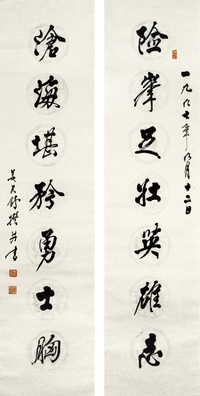 一九八七年八月十二日
险峰足壮英雄志
沧海堪矜勇士胸
吴天舒撰并书